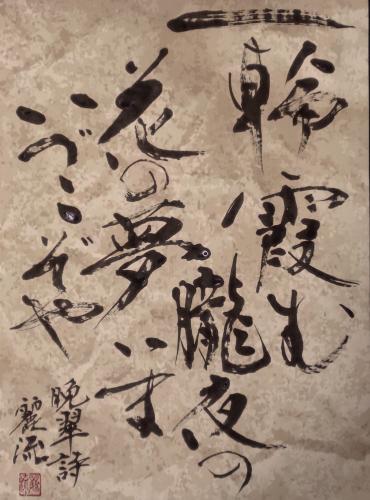 一輪霞む
朧夜の
花の夢いま
いづこぞや
晩翠詩
麗流